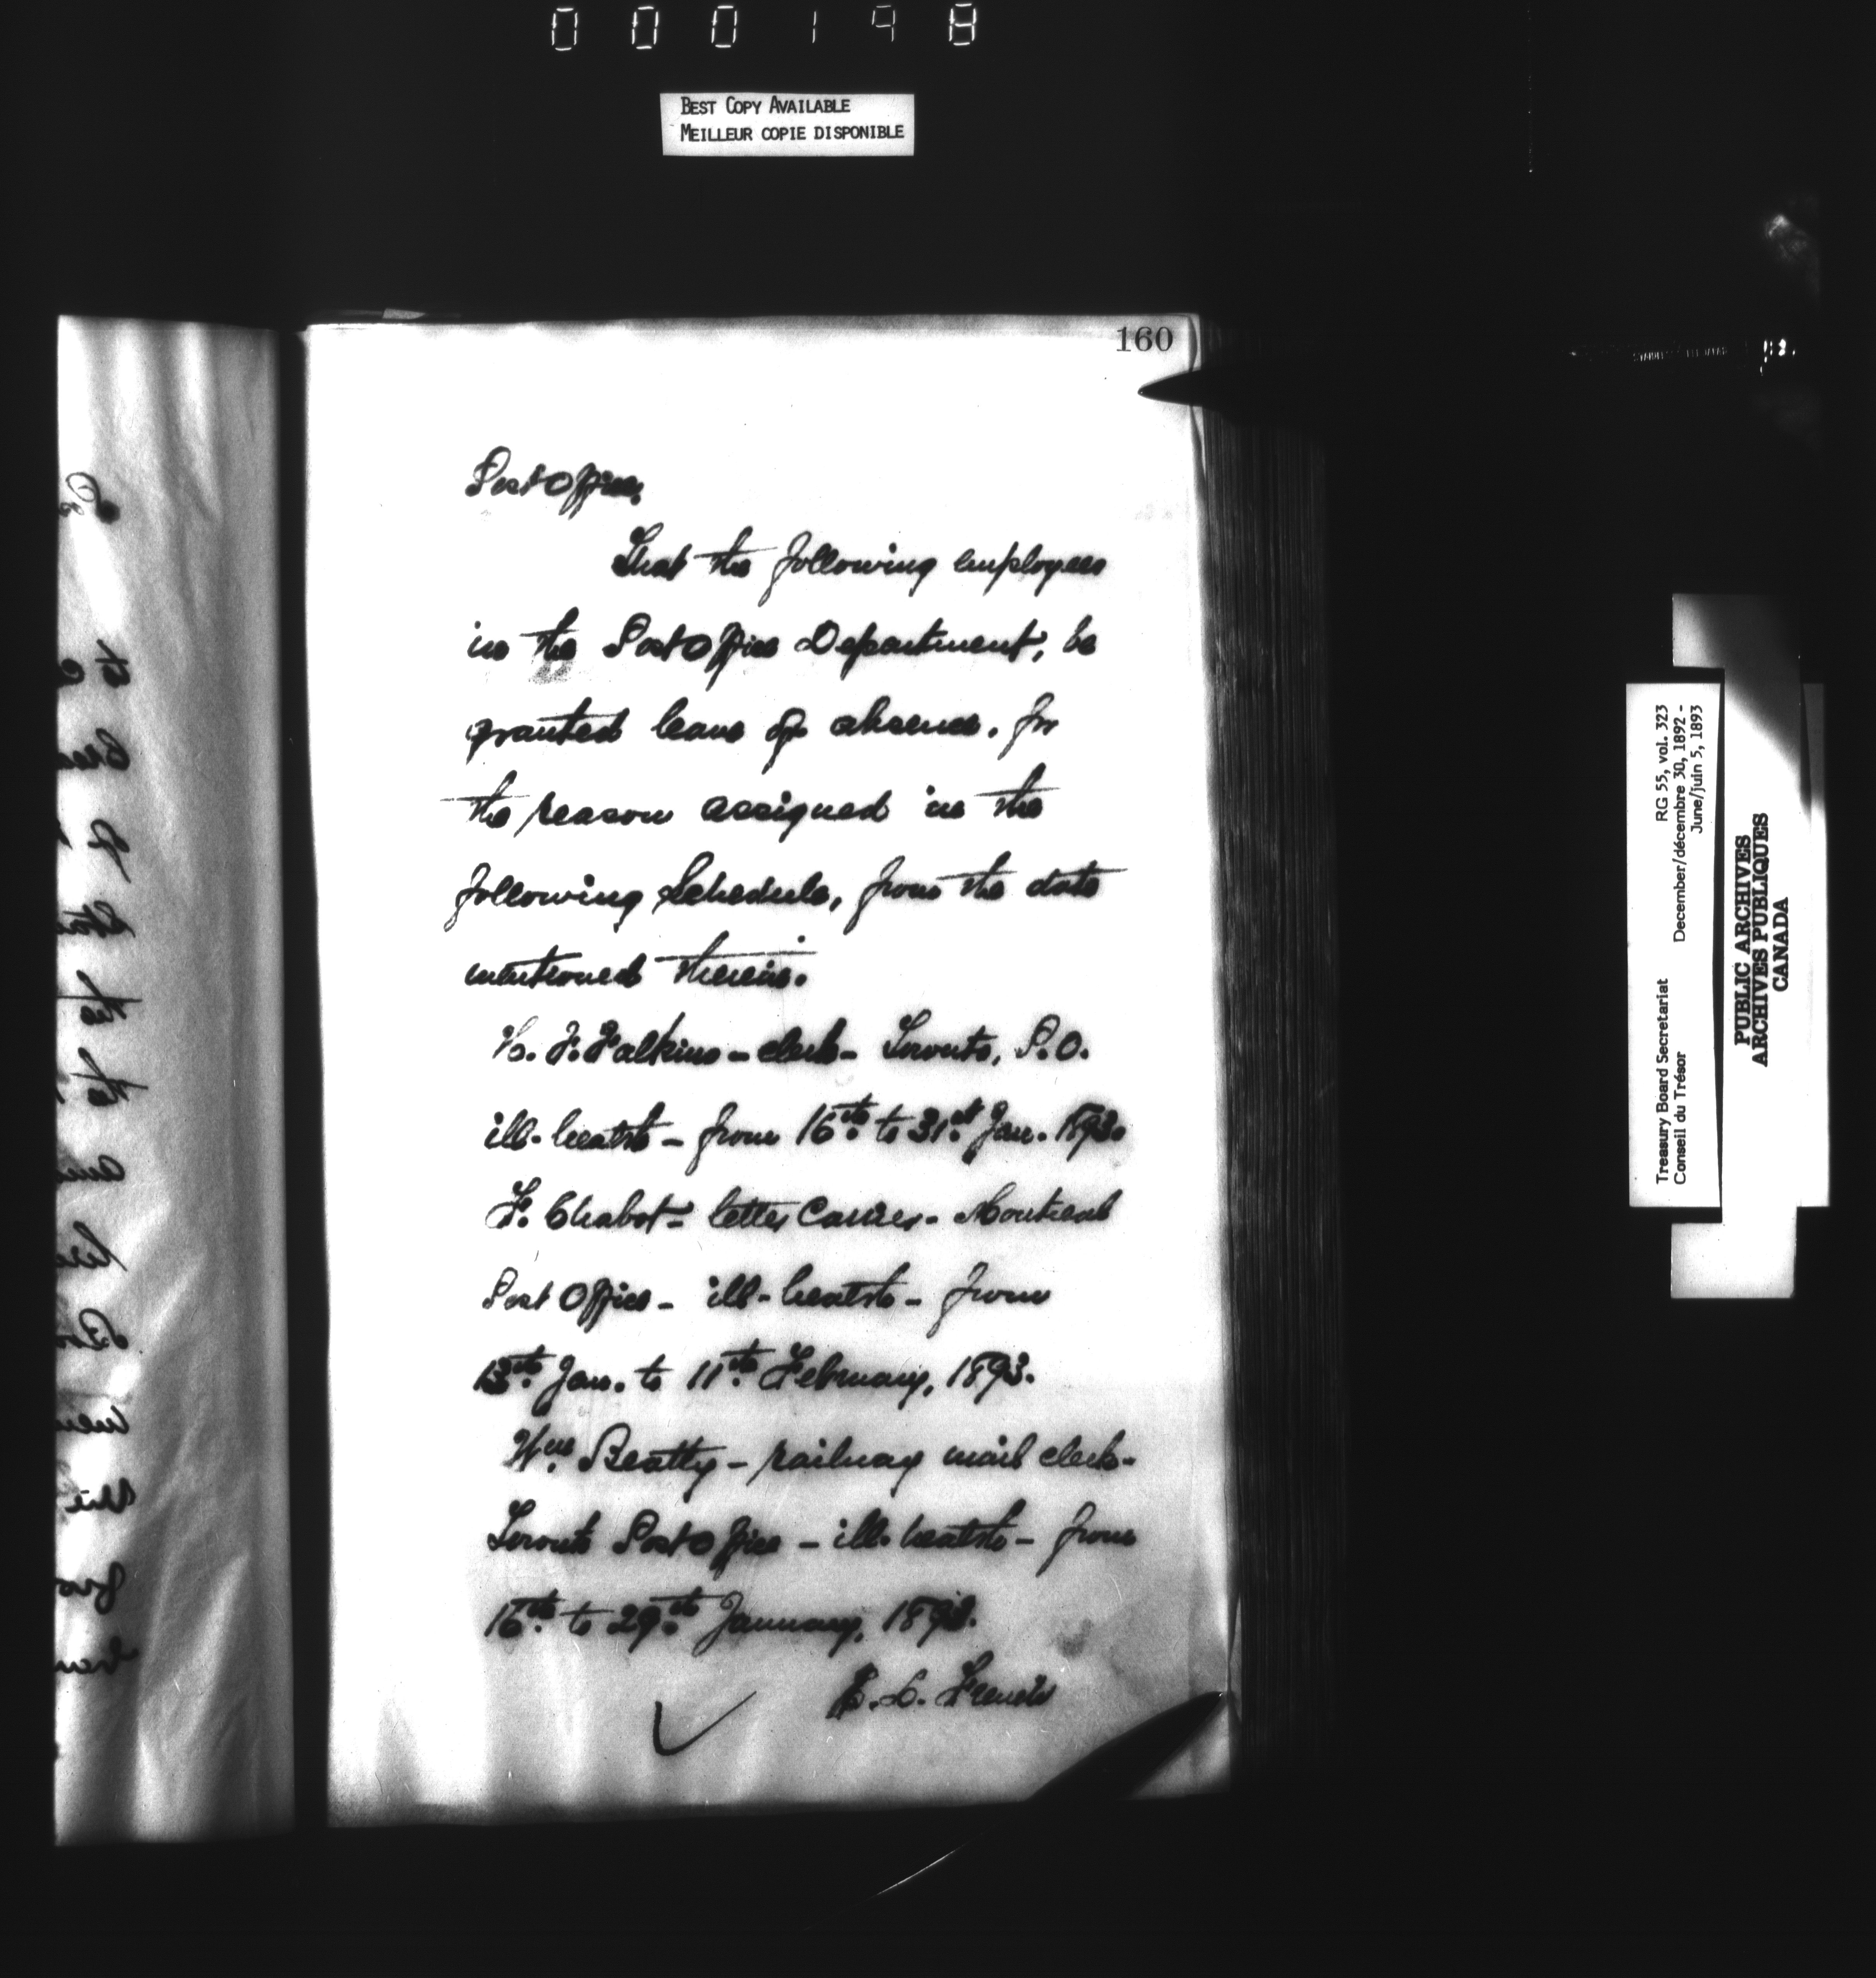 000198
BEST COPY AVAILABLE
MEILLEUR COPIE DISPONIBLE
160
Post Office,
That the following employees
in the Post Office Department, be
granted leave of absence, for
the reason assigned in the
following Schedule, from the date
mentioned therein.
J. Falkins - clerk - Toronto, P.O.
ill-health - from 16th to 31st Jan. 1893.
F. Chabot - letter Carrier - Montreal
Post Office - ill-health - from
13th Jan. to 11th February, 1893.
Wm Beatty - railway mail clerk -
Toronto Post Office - ill-health - from
16th to 29th January, 1893.
Treasury Board Secretariat RG 55, vol. 323
Conseil du Trésor December/décembre 30, 1892 -
June/juin 5, 1893
PUBLIC ARCHIVES
ARCHIVES PUBLIQUES
CANADA